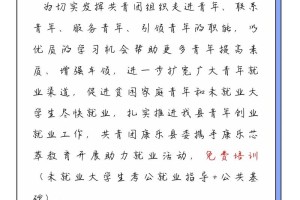 为切实发挥共青团组织走进青年、联系
青年、服务青年、引领青年的职能，以
优质的学习机会帮助更多青年提高素
质，增强本领，进一步扩宽广大青年就
业渠道，促进贫困家庭青年和未就业大
学生尽快就业，扎实推进我县青年创业
就业工作，共青团康乐县委携手康乐芯
萃教育开展助力就业活动，免费培训
（未就业大学生考公就业指导+公共基